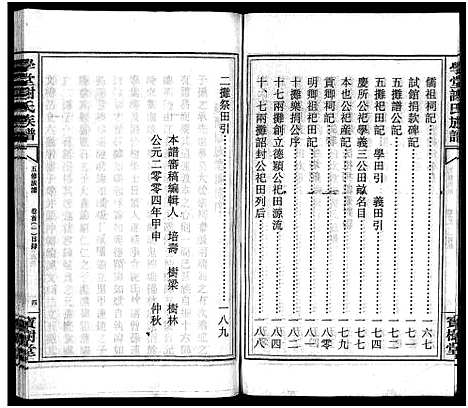 學堂謝氏族譜
儒祖祠記 六七
試館捐款碑記 六八
五攤譜公記 七一
五攤祀田記 學田引 義田引 七二
慶所公祀學義三公田畝名目 七四
本也公祀産記 七七
貢卿祠記 七九
明卿祖祀田記 八〇
十攤樂捐公序 八一
十七兩攤創立德穎公祀田源流 八四
十、七兩攤詔封公祀田列后 八八
寶樹堂
二攤祭田引 八九
本譜審稿編輯人 培壽 樹梁 樹林
公元二零零四年甲申 仲秋
學堂謝氏族譜
五修族譜
卷首(一)目錄
四
寶樹堂